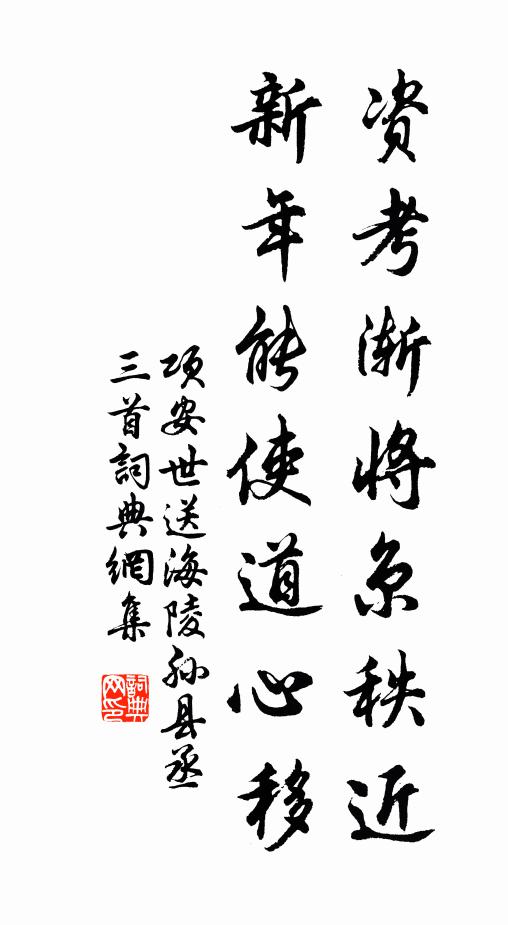 资考渐将京秩近
新年能使道心移
项安世送海陵孙县丞
三首詞典網集
詞典网印